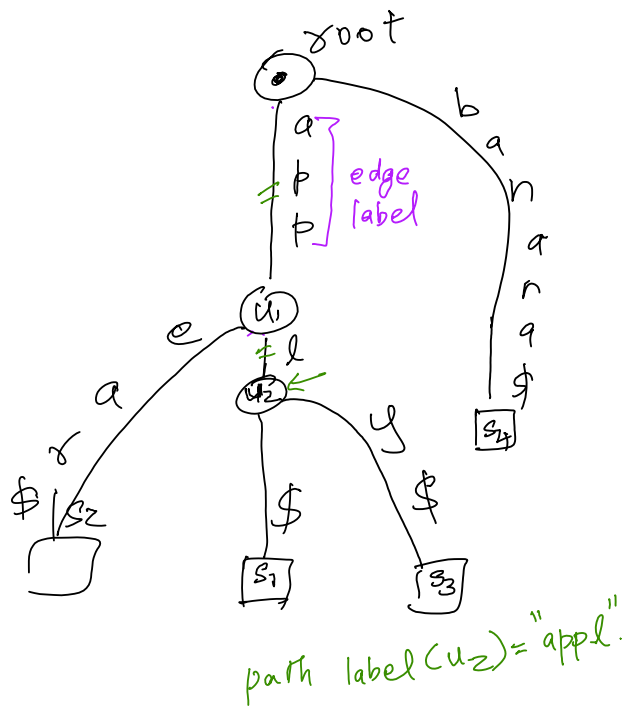 root
a
p
p
edge
label
b
a
n
a
n
a
$
u₁
e
a
r
$
S2
l
u₂
$
y
$
S1
S3
S4
path label(u₂)="appl".